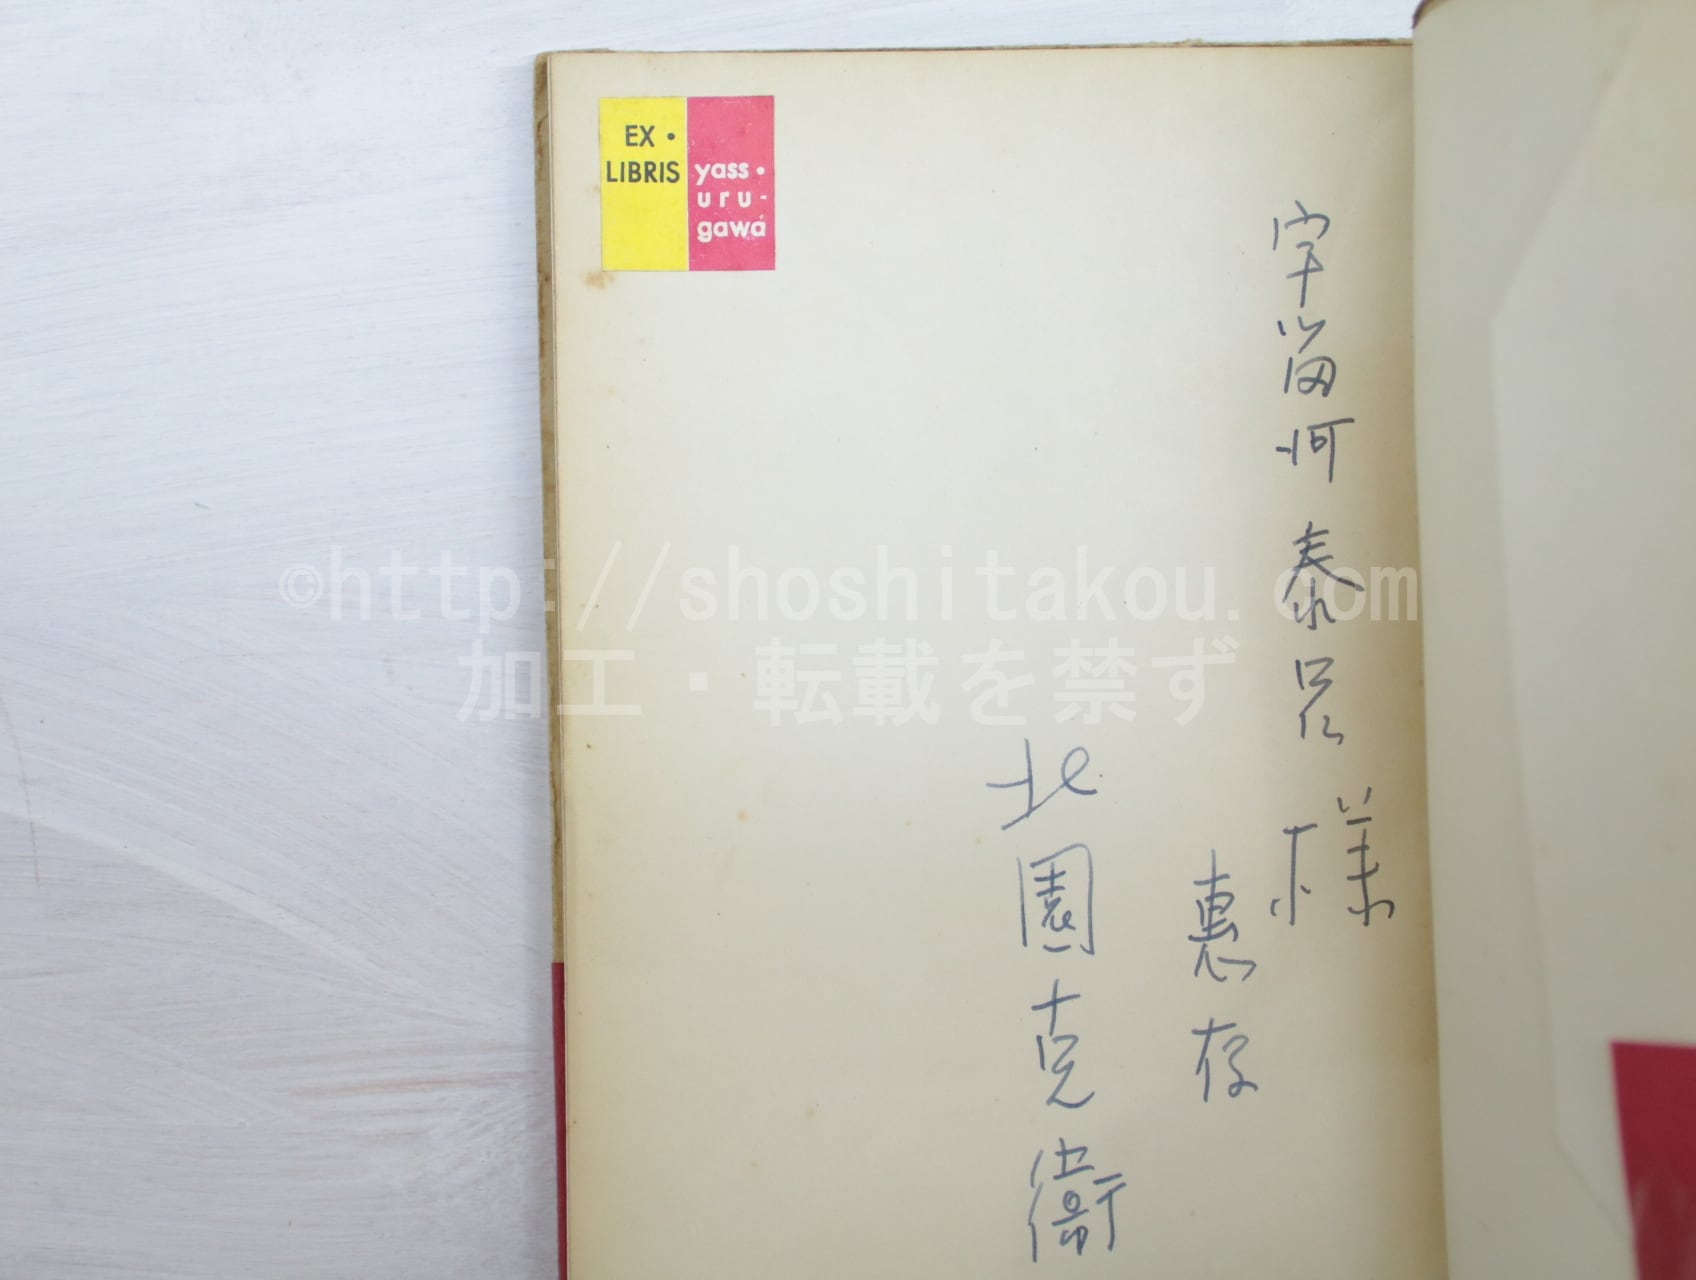 EX・
LIBRIS
yass・
uru-
gawa
宇留河泰呂様
惠存
北園克衛
©http://shoshitakou.com
加工・転載を禁ず